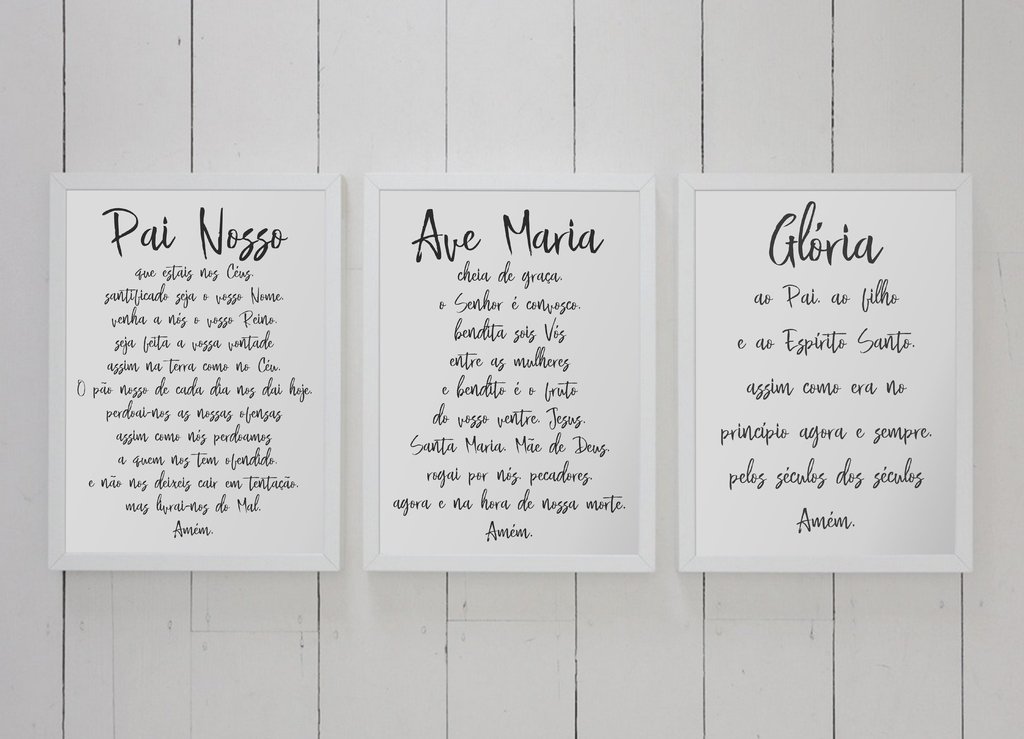 Pai Nosso
que estais nos Céus.
santificado seja o vosso Nome.
venha a nós o vosso Reino.
seja feita a vossa vontade
assim na terra como no Céu.
O pão nosso de cada dia nos dai hoje.
perdoai-nos as nossas ofensas
assim como nós perdoamos
a quem nos tem ofendido.
e não nos deixeis cair em tentação.
mas livrai-nos do Mal.
Amém.
Ave Maria
cheia de graça.
o Senhor é convosco.
bendita sois Vós
entre as mulheres
e bendito é o fruto
do vosso ventre. Jesus.
Santa Maria. Mãe de Deus.
rogai por nós. pecadores.
agora e na hora de nossa morte.
Amém.
Glória
ao Pai. ao filho
e ao Espírito Santo.
assim como era no
princípio agora e sempre.
pelos séculos dos séculos
Amém.